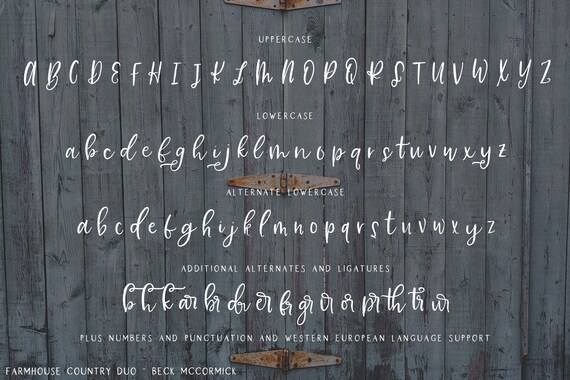 UPPERCASE
A B C D E F H I J K L M N O P Q R S T U V W X Y Z
LOWERCASE
a b c d e f g h i j k l m n o p q r s t u v w x y z
ALTERNATE LOWERCASE
a b c d e f g h i j k l m n o p q r s t u v w x y z
ADDITIONAL ALTERNATES AND LIGATURES
b h k ar br dr er fr gr ir or pr th tr ur
PLUS NUMBERS AND PUNCTUATION AND WESTERN EUROPEAN LANGUAGE SUPPORT
FARMHOUSE COUNTRY DUO ~ BECK MCCORMICK